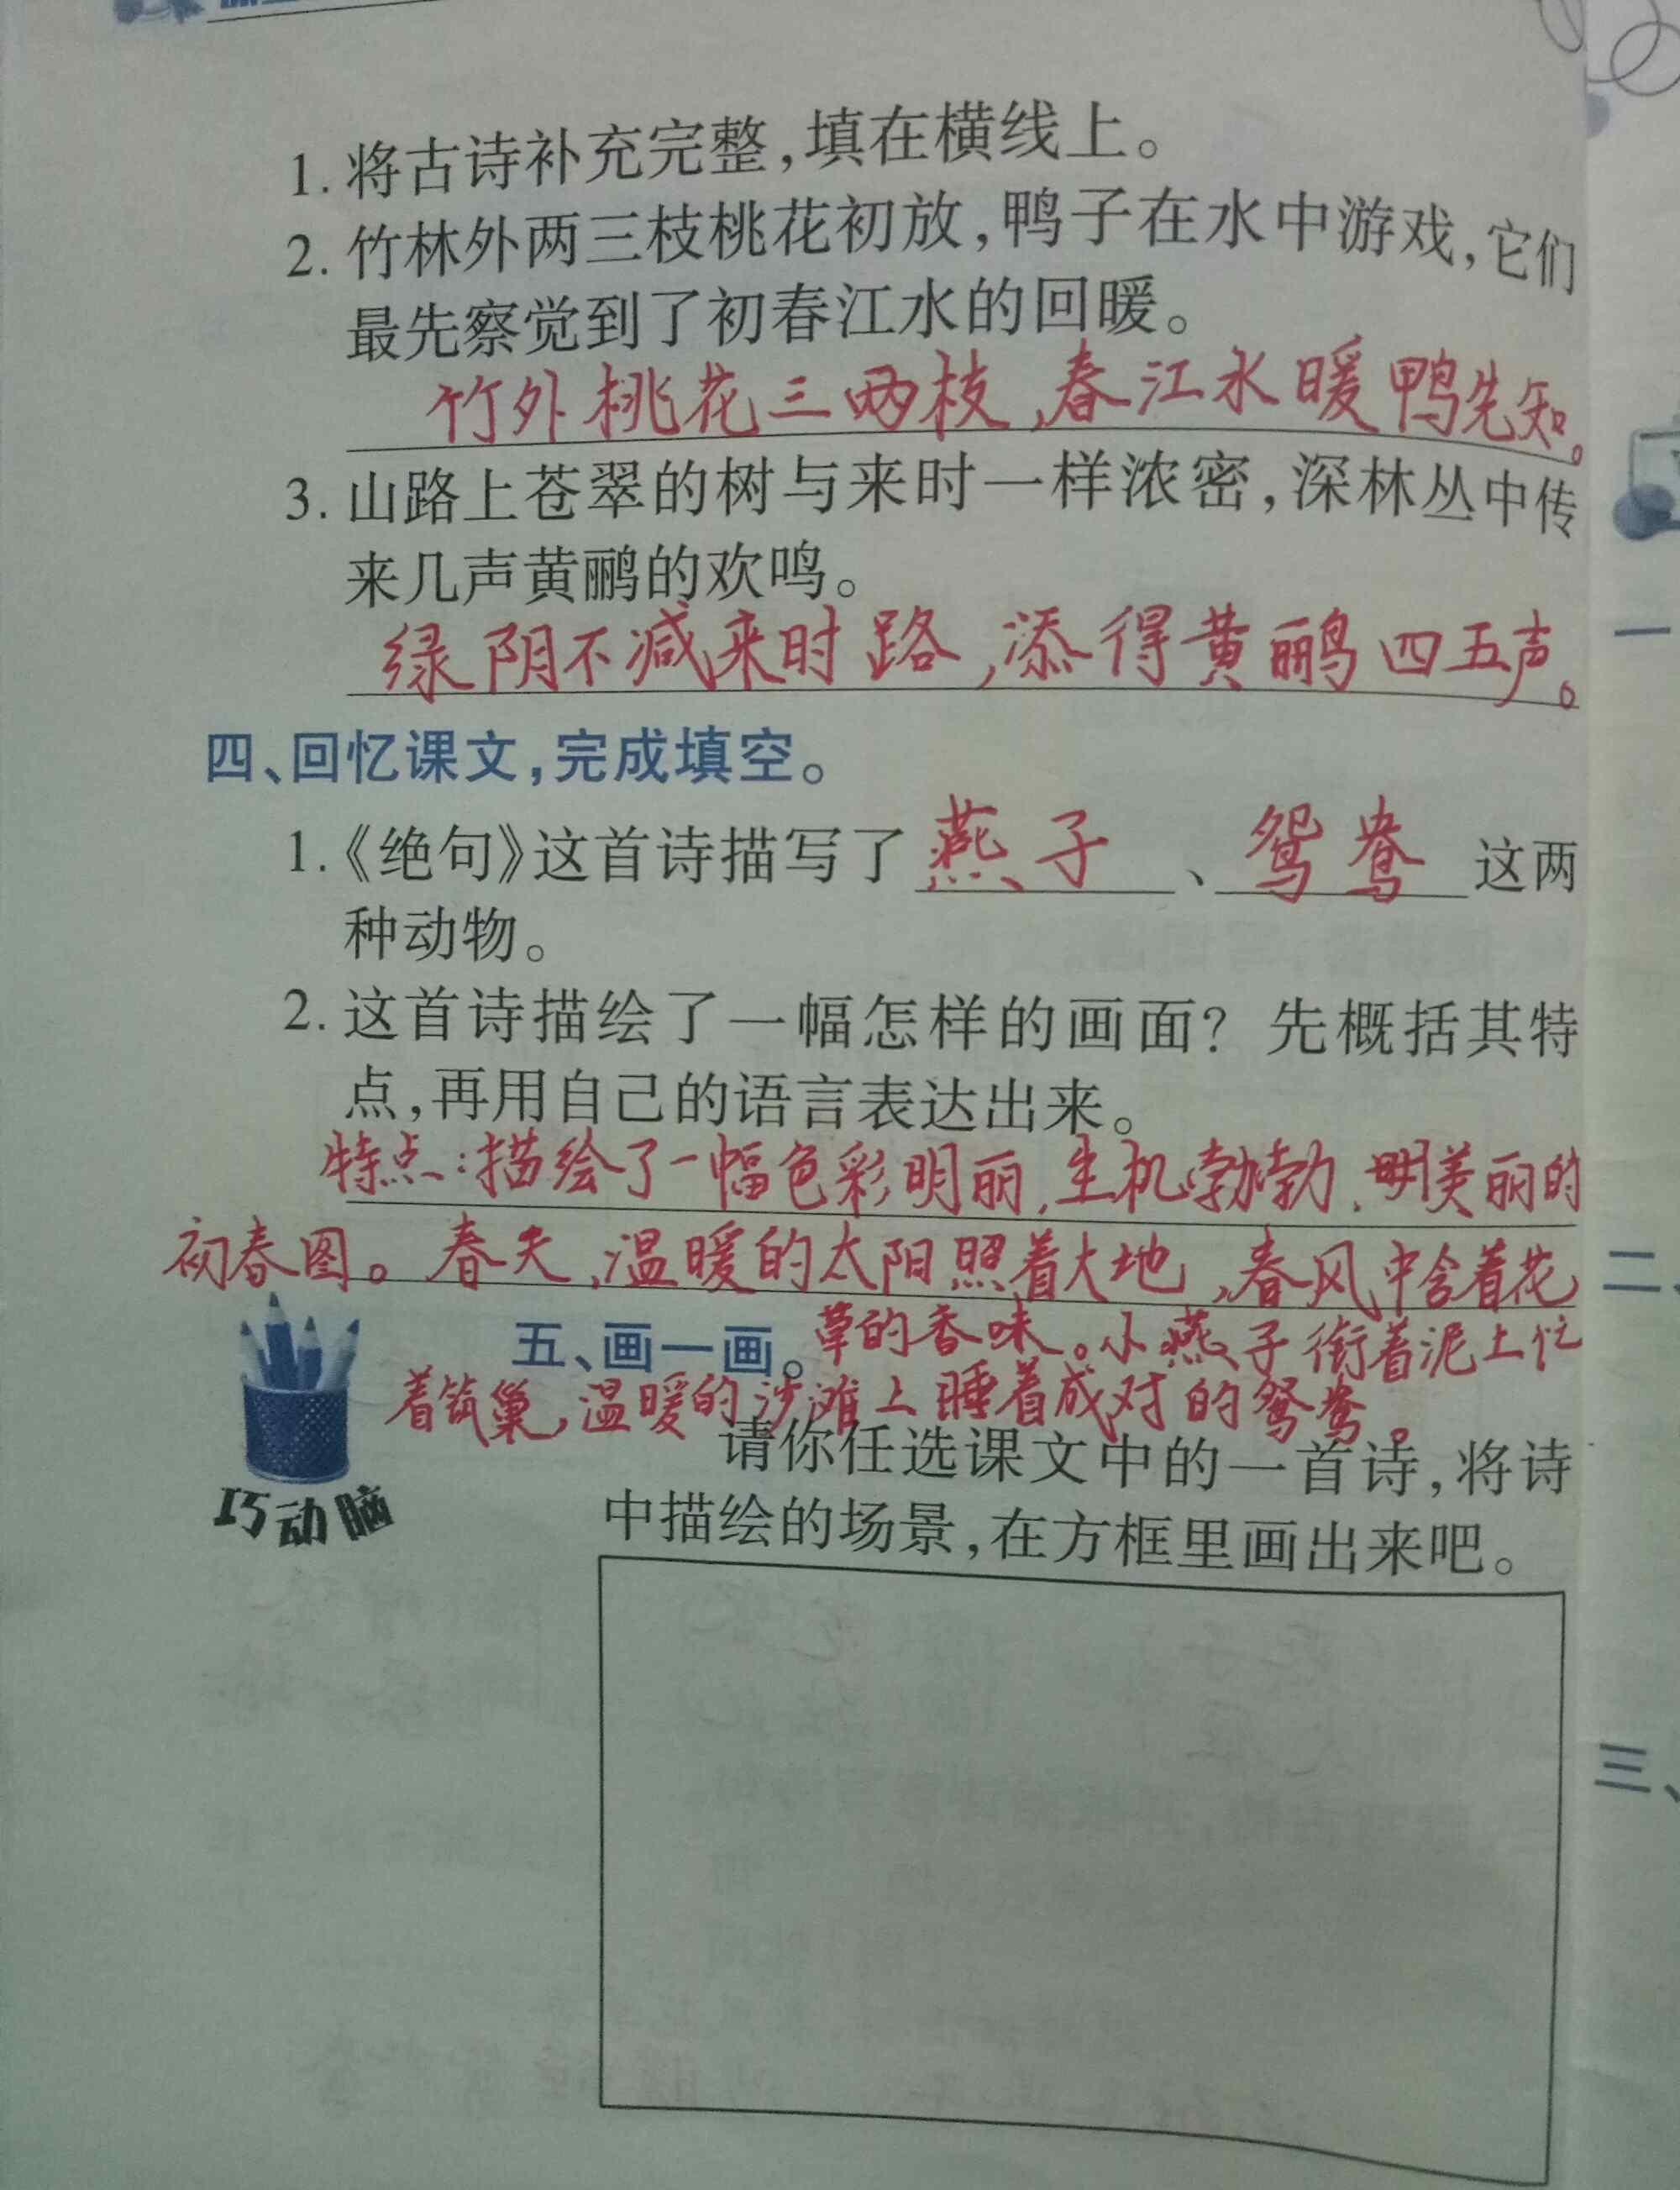 1. 将古诗补充完整，填在横线上。
2. 竹林外两三枝桃花初放，鸭子在水中游戏，它们
最先察觉到了初春江水的回暖。
竹外桃花三两枝，春江水暖鸭先知。
3. 山路上苍翠的树与来时一样浓密，深林丛中传
来几声黄鹂的欢鸣。
绿阴不减来时路，添得黄鹂四五声。
四、回忆课文，完成填空。
1.《绝句》这首诗描写了 燕子 、 鸳鸯 这两
种动物。
2. 这首诗描绘了一幅怎样的画面？先概括其特
点，再用自己的语言表达出来。
特点：描绘了一幅色彩明丽，生机勃勃、明美丽的
初春图。春天，温暖的太阳照着大地，春风中含着花
草的香味。小燕子衔着泥土忙
着筑巢，温暖的沙滩上睡着成对的鸳鸯。
五、画一画。
巧动脑
请你任选课文中的一首诗，将诗
中描绘的场景，在方框里画出来吧。
一
二、
三、